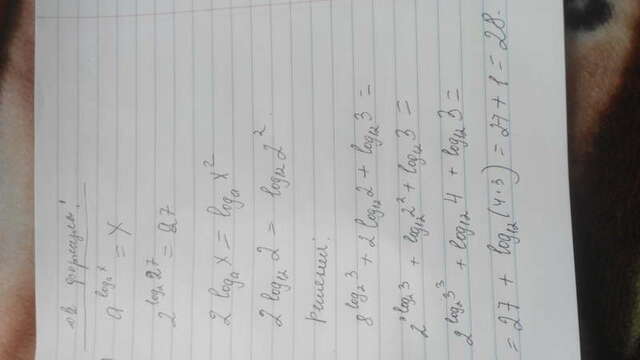 формулы:
a^{log_a x} = x
2^{log_2 27} = 27
2 log_a x = log_a x^2
2 log_12 2 = log_12 2^2.
Решение:
8^{log_2 3} + 2 log_12 2 + log_12 3 =
2^{log_2 3} + log_12 2^2 + log_12 3 =
2^{log_2 3^3} + log_12 4 + log_12 3 =
= 27 + log_12 (4·3) = 27 + 1 = 28.